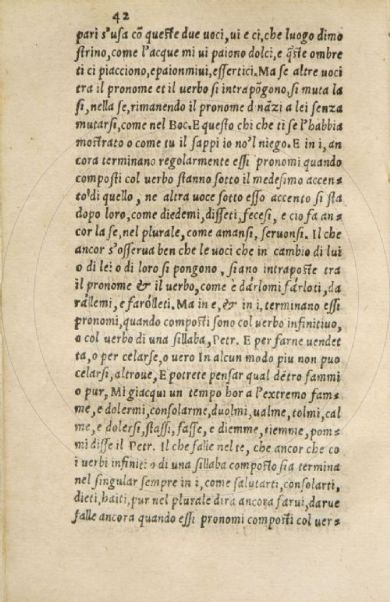 42
pari s'usa cō queste due uoci, ui e ci, che luogo dimo
strino, come l'acque mi ui paiono dolci, e q̄ste ombre
ti ci piacciono, e paionmiui, essertici. Ma se altre uoci
tra il pronome et il uerbo si intrapōgono, si muta la
si, nella se, rimanendo il pronome d'nāzi a lei senza
mutarsi, come nel Boc. E questo chi che ti se l'habbia
mostrato o come tu il sappi io no'l niego. E in i, an
cora terminano regolarmente essi pronomi quando
composti col uerbo stanno sotto il medesimo accen⸗
to di quello, ne altra uoce sotto esso accento si sta
dopo loro, come diedemi, disseti, fecesi, e cio fa an⸗
cor la se, nel plurale, come amansi, seruonsi. Il che
ancor s'osserua ben che le uoci che in cambio di lui
o di lei o di loro si pongono, siano intraposte tra
il pronome & il uerbo, come e dàrlomi fàrloti, da
ràllemi, e faròlleti. Ma in e, & in i, terminano essi
pronomi, quando composti sono col uerbo infinitiuo,
o col uerbo di una sillaba, Petr. E per farne uendet
ta, o per celarse, o uero In alcun modo piu non puo
celarsi, altroue, E potrete pensar qual dētro fammi
o pur, Mi giacqui un tempo hor a l'extremo fam⸗
me, e dolermi, consolarme, duolmi, ualme, tolmi, cal
me, e dolersi, stassi, fasse, e diemme, tiemme, pom⸗
mi disse il Petr. Il che falle nel te, che ancor che co
i uerbi infiniti o di una sillaba composto sia termina
nel singular sempre in i, come salutarti, consolarti,
dieti, haiti, pur nel plurale dirà ancora farui, darue
falle ancora quando essi pronomi composti col uer⸗